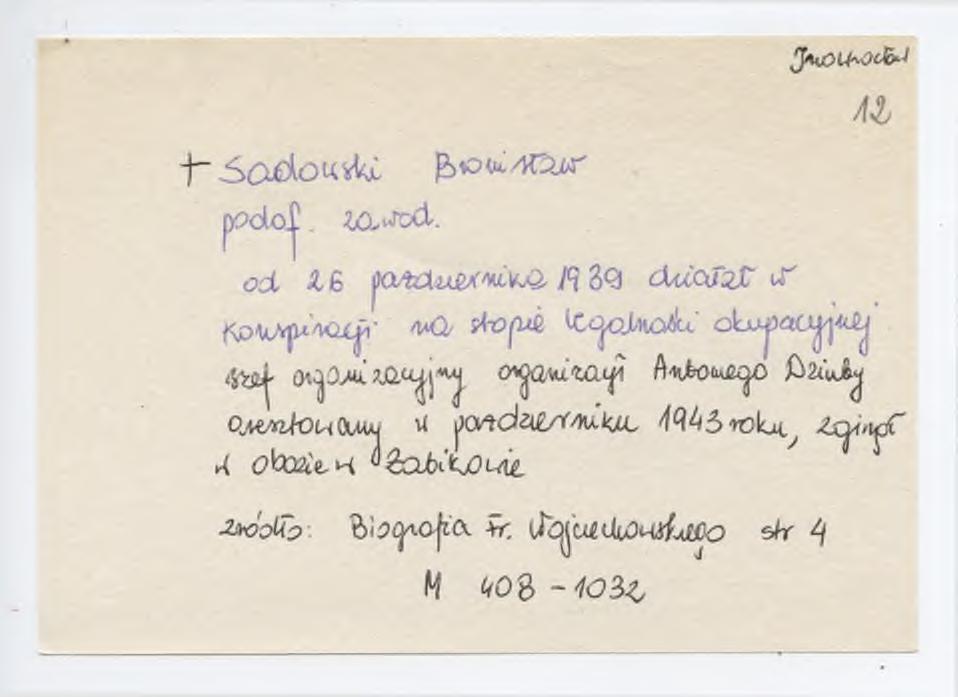 Inowrocław
12
+ Sadowski Bronisław
podof. zawod.
od 26 października 1939 działał w
konspiracji na stopie legalności okupacyjnej
szef organizacyjny organizacji Antoniego Dziuby
aresztowany w październiku 1943 roku, zginął
w obozie w Żabikowie
źródło: Biografia Fr. Wojciechowskiego str 4
M 408-1032